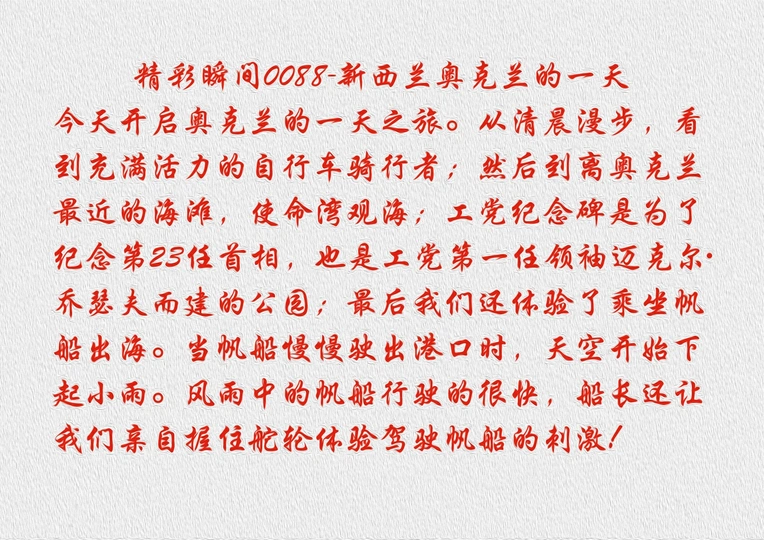 精彩瞬间0088-新西兰奥克兰的一天
今天开启奥克兰的一天之旅。从清晨漫步，看
到充满活力的自行车骑行者；然后到离奥克兰
最近的海滩，使命湾观海；工党纪念碑是为了
纪念第23任首相，也是工党第一任领袖迈克尔·
乔瑟夫而建的公园；最后我们还体验了乘坐帆
船出海。当帆船慢慢驶出港口时，天空开始下
起小雨。风雨中的帆船行驶的很快，船长还让
我们亲自握住舵轮体验驾驶帆船的刺激！